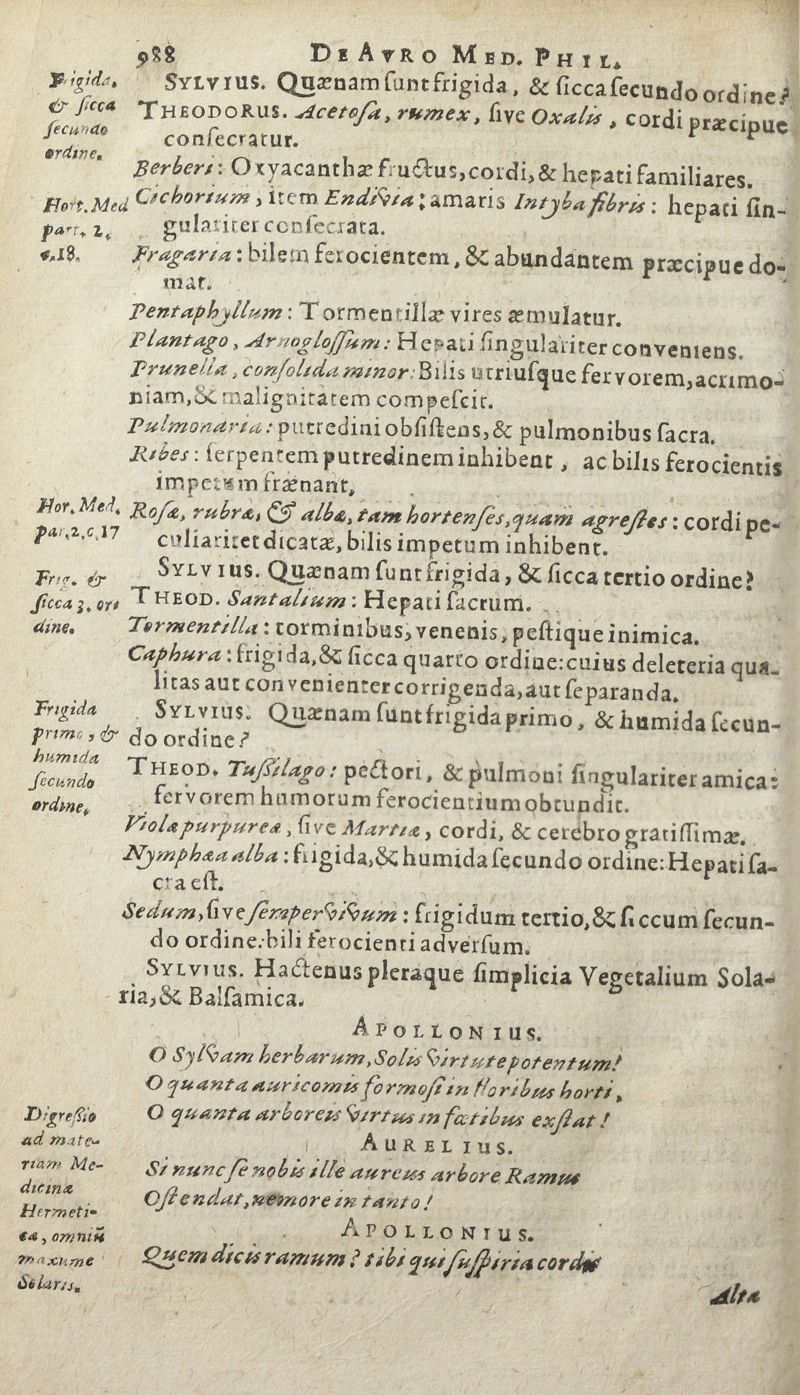 988 DE AVRO MED. PHIL.
Frigida,
& ſicca
ſecundo
ordine.
SYLVIUS. Quænam ſunt frigida, & ſicca ſecundo ordine?
THEODORUS. Acetoſa, rumex, ſive Oxalis, cordi præcipue
conſecratur.
Berberi: Oxyacanthæ fructus, cordi, & hepati familiares.
Hort. Med
part. 2,
c.18.
Cichorium, item Endivia; amaris Intyba fibris: hepati ſin-
gulariter conſecrata.
Fragaria: bilem ferocientem, & abundantem præcipue do-
mat.
Pentaphyllum: Tormentillæ vires æmulatur.
Plantago, Arnogloſſum: Hepati ſingulariter conveniens.
Prunella, conſolida minor: Bilis utriuſque fervorem, acrimo-
niam, & malignitatem compeſcit.
Pulmonaria: putredini obſiſtens, & pulmonibus ſacra.
Ribes: ſerpentem putredinem inhibent, ac bilis ferocientis
impetum frænant,
Hor. Med.
par.2.c.17
Roſæ, rubræ, & albæ, tam hortenſes, quam agreſtes: cordi pe-
culiariter dicatæ, bilis impetum inhibent.
Frig. &
ſicca 3. or-
dine.
SYLVIUS. Quænam ſunt frigida, & ſicca tertio ordine?
THEOD. Santalium: Hepati ſacrum.
Tormentilla: torminibus, venenis, peſtique inimica.
Caphura: frigida, & ſicca quarto ordine: cuius deleteria qua-
litas aut convenienter corrigenda, aut ſeparanda.
Frigida
primo, &
humida
ſecundo
ordine.
SYLVIUS. Quænam ſunt frigida primo, & humida ſecun-
do ordine?
THEOD. Tuſſilago: pectori, & pulmoni ſingulariter amica:
fervorem humorum ferocientium obtundit.
Viola purpurea, ſive Martia, cordi, & cerebro gratiſſimæ.
Nymphæa alba: frigida, & humida ſecundo ordine: Hepati ſa-
cra eſt.
Sedum, ſive ſempervivum: frigidum tertio, & ſiccum ſecun-
do ordine: bili ferocienti adverſum.
SYLVIUS. Hactenus pleraque ſimplicia Vegetalium Sola-
ria, & Balſamica.
APOLLONIUS.
O Sylvam herbarum, Solis virtute potentum!
O quanta auricomis formoſi in floribus horti,
O quanta arboreis virtus in fœtibus exſtat!
Digreſſio
ad mate-
riam Me-
dicinæ
Hermeti-
cæ, omniũ
maxume
Solaris.
AURELIUS.
Si nunc ſe nobis ille aureus arbore Ramus
Oſtendat, nemore in tanto!
APOLLONIUS.
Quem dicis ramum? tibi qui ſuſpiria cordis
Alta